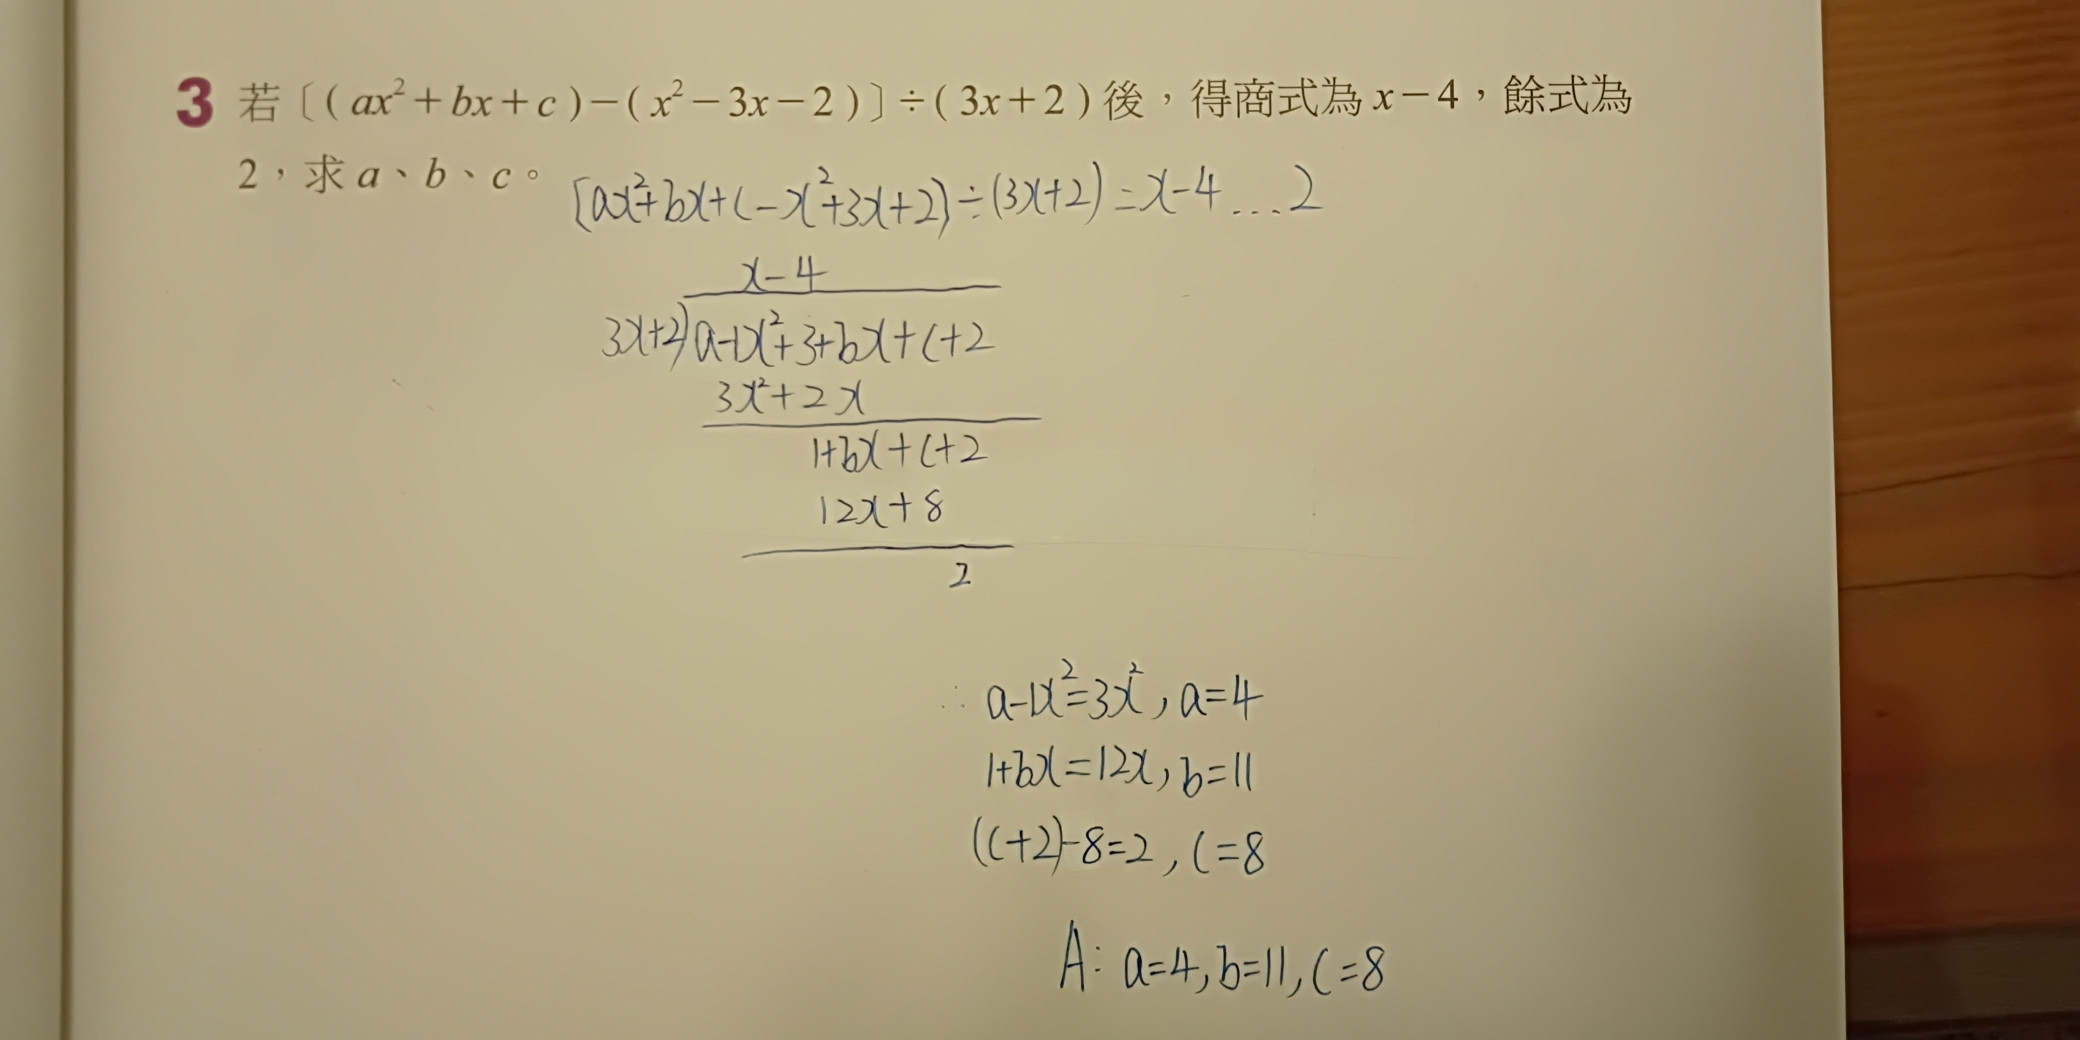 3 若〔(ax²+bx+c)−(x²−3x−2)〕÷(3x+2)後，得商式為x−4，餘式為
2，求a、b、c。
[ax²+bx+c-x²+3x+2]÷(3x+2)=x-4...2
x-4
3x+2)a-1x²+3+bx+c+2
3x²+2x
1+bx+c+2
12x+8
2
∴ a-1x²=3x², a=4
1+bx=12x, b=11
(c+2)-8=2, c=8
A: a=4, b=11, c=8